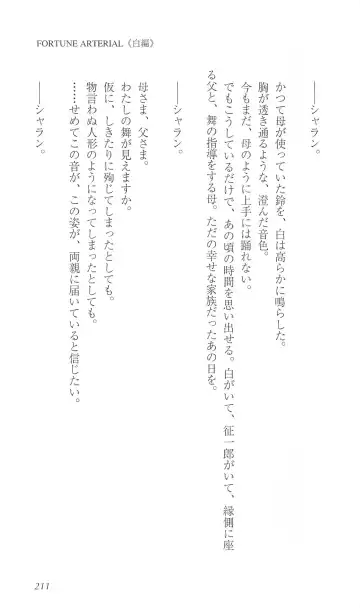 FORTUNE ARTERIAL《白編》
――シャラン。
かつて母が使っていた鈴を、白は高らかに鳴らした。
胸が透き通るような、澄んだ音色。
今もまだ、母のように上手には踊れない。
でもこうしているだけで、あの頃の時間を思い出せる。白がいて、征一郎がいて、縁側に座
る父と、舞の指導をする母。ただの幸せな家族だったあの日を。
――シャラン。
母さま、父さま。
わたしの舞が見えますか。
仮に、しきたりに殉じてしまったとしても。
物言わぬ人形のようになってしまったとしても。
……せめてこの音が、この姿が、両親に届いていると信じたい。
――シャラン。
211